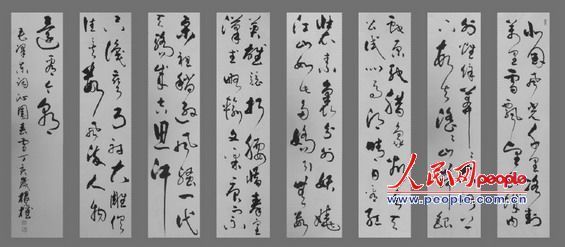 北国风光千里冰封
萬里雪飘望長城内
外惟餘莽莽大河上
下頓失滔滔山舞銀
蛇原驰蜡象欲与天
公试比高须晴日看红
装素裹分外妖娆
江山如此多娇引無數
英雄竞折腰惜秦皇
漢武略输文采唐宗
宋祖稍逊风骚一代
天骄成吉思汗
只識彎弓射大雕俱
往矣数风流人物
還看今朝
毛澤東詞沁園春雪丁亥歲
人民网
www.people.com.cn